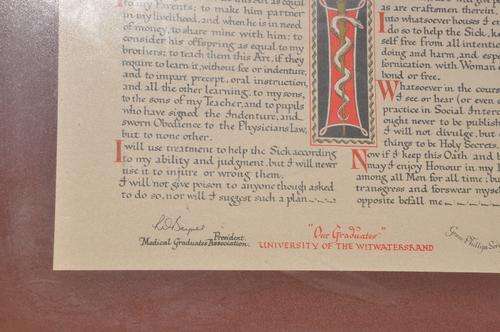 to my Parents: to make him partner
in my livelihood, and when he is in need
of money, to share mine with him: to
consider his offspring as equal to my
brothers: to teach them this Art, if they
require to learn it, without fee or indenture,
and to impart precept, oral instruction,
and all the other learning, to my sons,
to the sons of my Teacher, and to pupils
who have signed the Indenture, and
sworn Obedience to the Physicians Law,
but to none other.
I will use treatment to help the Sick according
to my ability and judgment, but I will never
use it to injure or wrong them.
I will not give poison to anyone though asked
to do so, nor will I suggest such a plan
as are craftsmen therein.
Into whatsoever houses I
do so to help the Sick,
self free from all
doing and harm, and
fornication with Woman
bond or free.
Whatsoever in the
I see or hear (or even
practice in Social
ought never to be
I will not divulge, but
things to be Holy Secrets.
Now if I keep this Oath and
may I enjoy Honour in my
among all Men for all time: but
transgress and forswear
opposite befall me
President
Medical Graduates Association.
"Our Graduates"
UNIVERSITY OF THE WITWATERSRAND